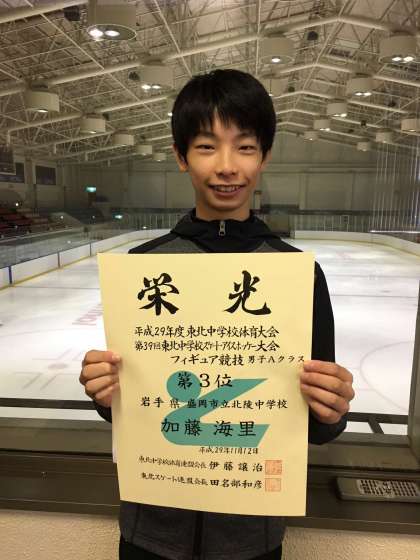 栄光
平成29年度東北中学校体育大会
第39回東北中学校スケート・アイスホッケー大会
フィギュア競技男子Aクラス
第3位
岩手県 盛岡市立北陵中学校
加藤 海里
平成29年11月12日
東北中学校体育連盟会長 伊藤讓治
東北スケート連盟会長 田名部和彦